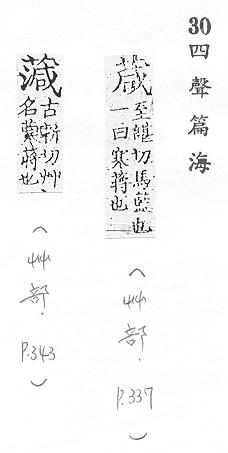 30四聲篇海
葴
至堪切馬藍也
一曰寒蔣也
(艸部. P.337)
古斬切艸
名蔣也
(艸部. P.343)